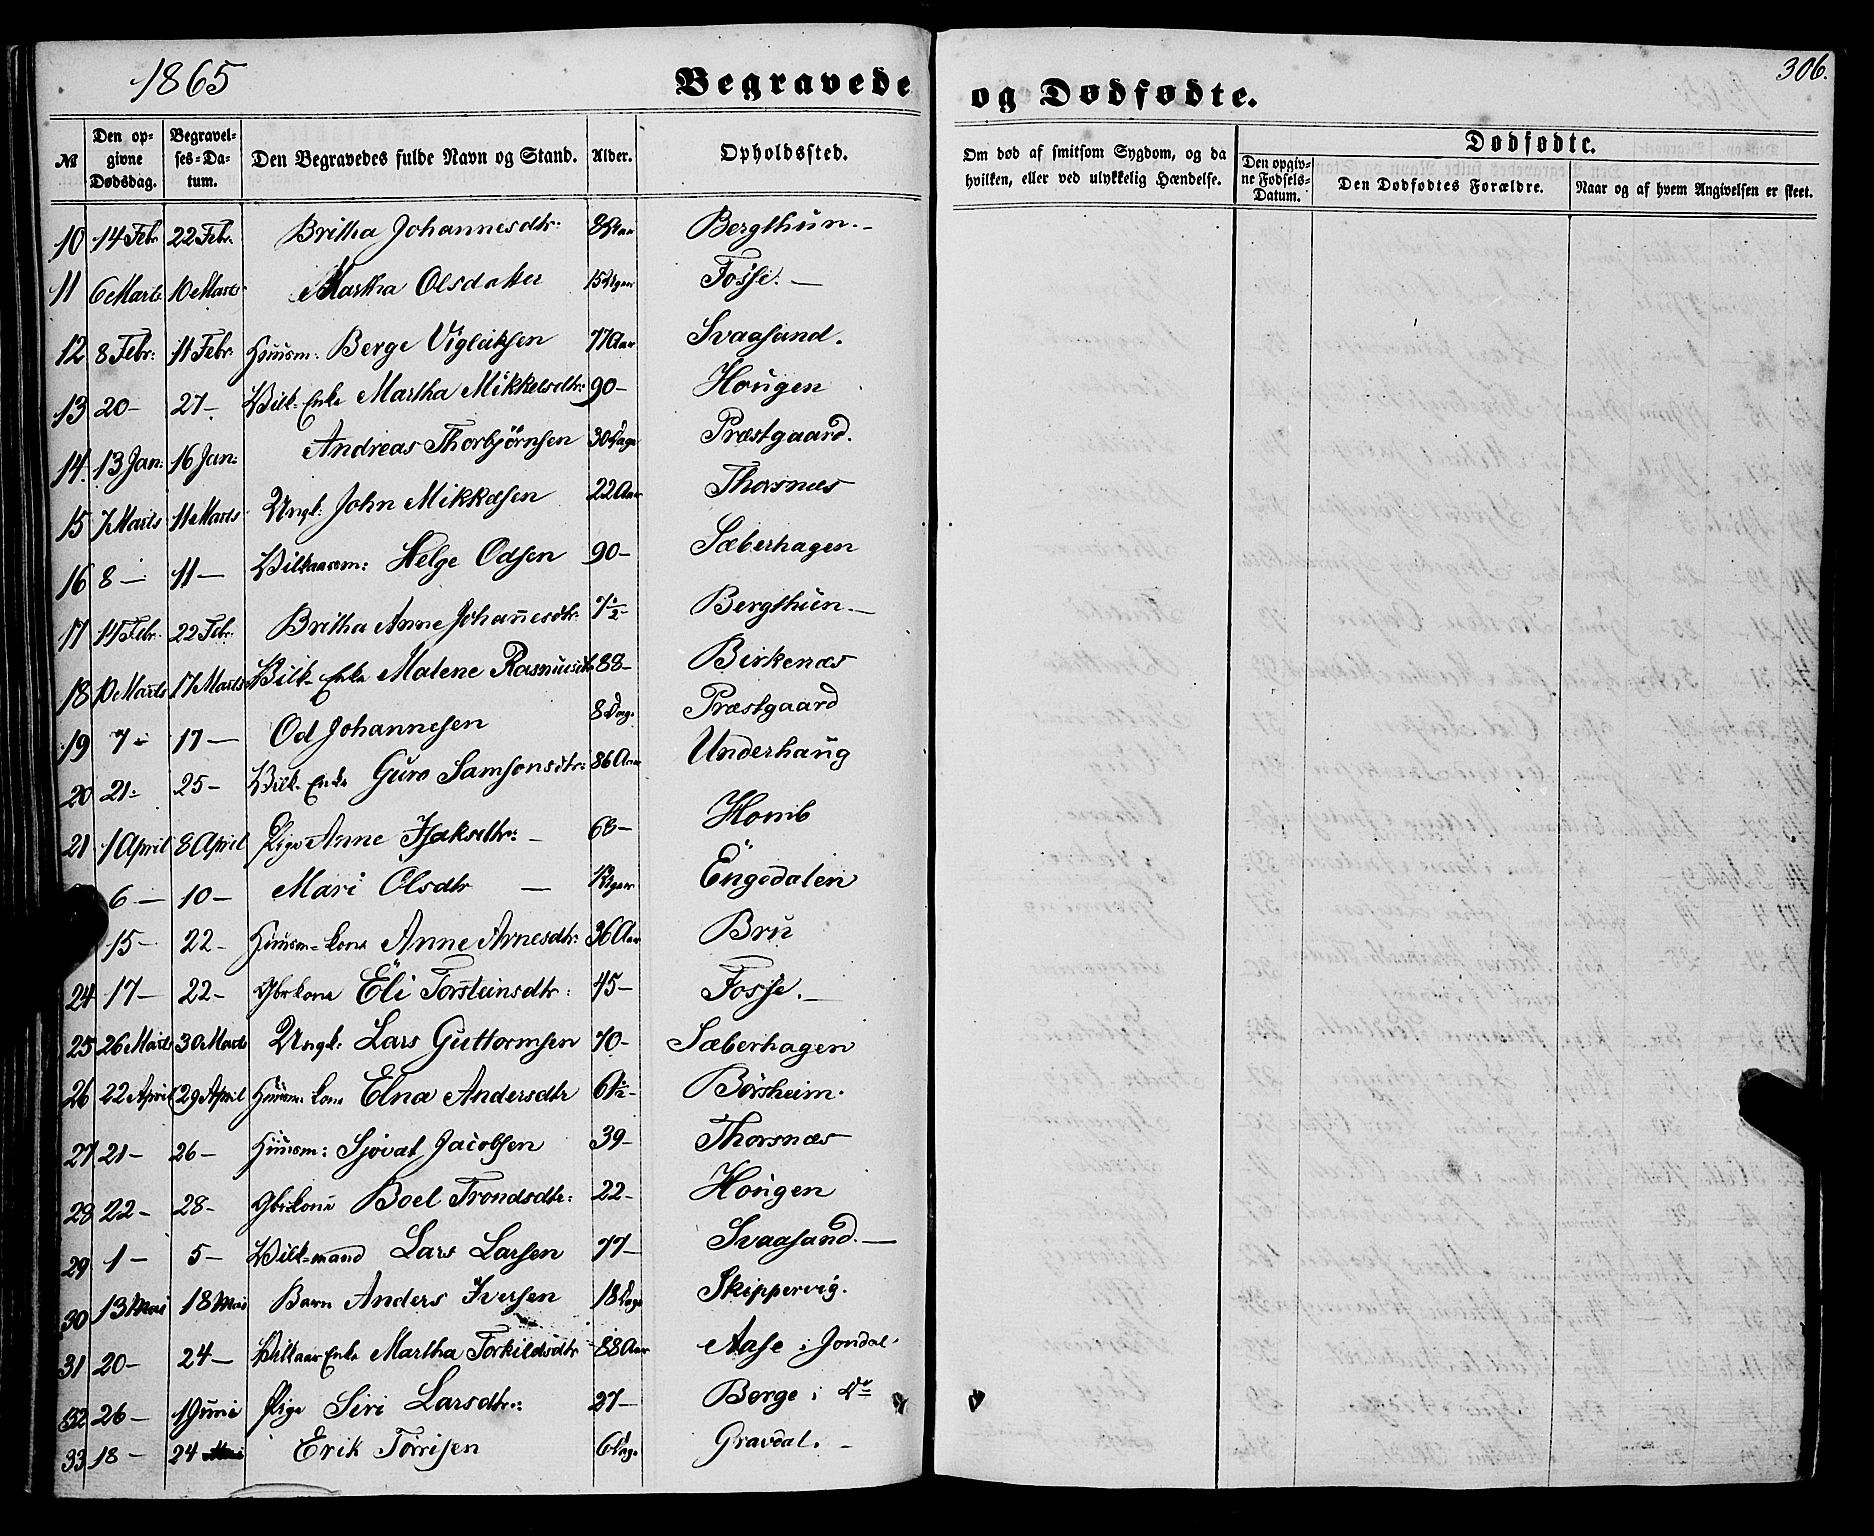 1865
Begravede
og Dødfødte.
306.
№
Den opgivne Dødsdag.
Begravelses-Datum.
Den Begravedes fulde Navn og Stand.
Alder.
Opholdssted.
Om død af smitsom Sygdom, og da hvilken, eller ved ulykkelig Hændelse.
Dødfødte.
Den opgivne Fødsels-Datum.
Den Dødfødtes Forældre.
Naar og af hvem Angivelsen er skeet.
10 14 Febr 22 Febr. Britha Johannesdtr: Bergthun.-
11 6 Marts 10 Marts Martha Olsdatter 15 Uger Fosse. —
12 8 Febr: 11 Febr: Huusm: Berge Vigleiksen 77 Aar Svaasand.
13 20 - 27 - Vilk. Enke Martha Mikkelsdtr: 90 - Hougen
14. 13 Jan: 16 Jan: Andreas Thorbjørnsen 30 Dage Præstgaard.
15 7 Marts 11 Marts Ungk: John Mikkelsen 22 Aar Thorsnæs
16 8 - 11 - Vilkaarsm: Helge Odsen 90 - Sæberhagen
17 14 Febr. 22 Febr. Britha Anne Johannesdtr. 7½ - Bergthun.—
18 10 Marts 17 Marts Vilk. Enke Malene Rasmusdtr 88 - Birkenæs
19 7 - 17 - Od Johannesen 8 Dage Præstgaard
20 21 - 25 - Vilk. Enke Guro Samsonsdtr: 86 Aar Underhaug
21 1 April 8 April Pige Anne Isaksdtr: - 68 - Homb
6 - 10 - Mari Olsdtr — Uger Engedalen
15 - 22 - Huusm-kone Anne Arnesdtr: 36 Aar Bru
24 17 - 22 - Gbrkone Eli Torsteinsdtr: 45 - Fosse. —
25 26 Marts 30 Marts Ungk: Lars Guttormsen 70 - Sæberhagen
26 22 April 29 April Huusm: kone Elna Andersdtr 61½ - Børsheim.
27 21 - 26 - Huusm: Sjovat Jacobsen 39 - Thorsnæs
28 22 - 28 - Gbrkone Boel Trondsdtr: 22 - Hougen
29 1 - 5 - Vilk-mand Lars Larsen 77 - Svaasand. —
30 13 Mai 18 Mai Barn Anders Iversen 18 Dage Skippervig.
31 20 - 24 - Vilkaar Enke Martha Torkildsdtr 88 Aar Aase i Jondal
32 26 - 1 Juni Pige Siri Larsdtr: 27 - Berge i Do
33 18 - 24 Erik Torrisen 6 Dage Gravdal. -